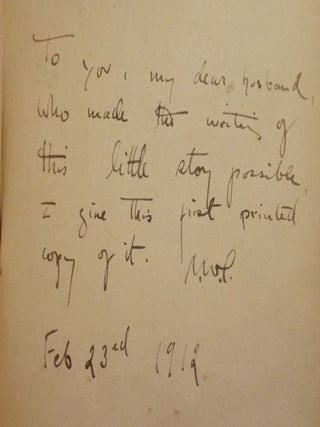 To you, my dear husband,
who made the writing of
this little story possible,
I give this first printed
copy of it.
Feb 23rd 1912